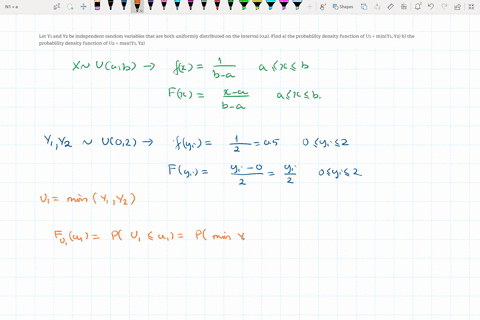 Let Y1 and Y2 be independent random variables that are both uniformly distributed on the interval (0,2). Find a) the probability density function of U1 = min(Y1, Y2) b) the
probability density function of U2 = max(Y1, Y2)
X ~ U(a,b) → f(x) = 1/(b-a) a ≤ x ≤ b
F(x) = (x-a)/(b-a) a ≤ x ≤ b.
Y₁,Y₂ ~ U(0,2) → f(yᵢ) = 1/2 = 0.5 0 ≤ yᵢ ≤ 2
F(yᵢ) = (yᵢ - 0)/2 = yᵢ/2 0 ≤ yᵢ ≤ 2
U₁ = min (Y₁, Y₂)
F_U₁(u₁) = P( U₁ ≤ u₁) = P( min Y